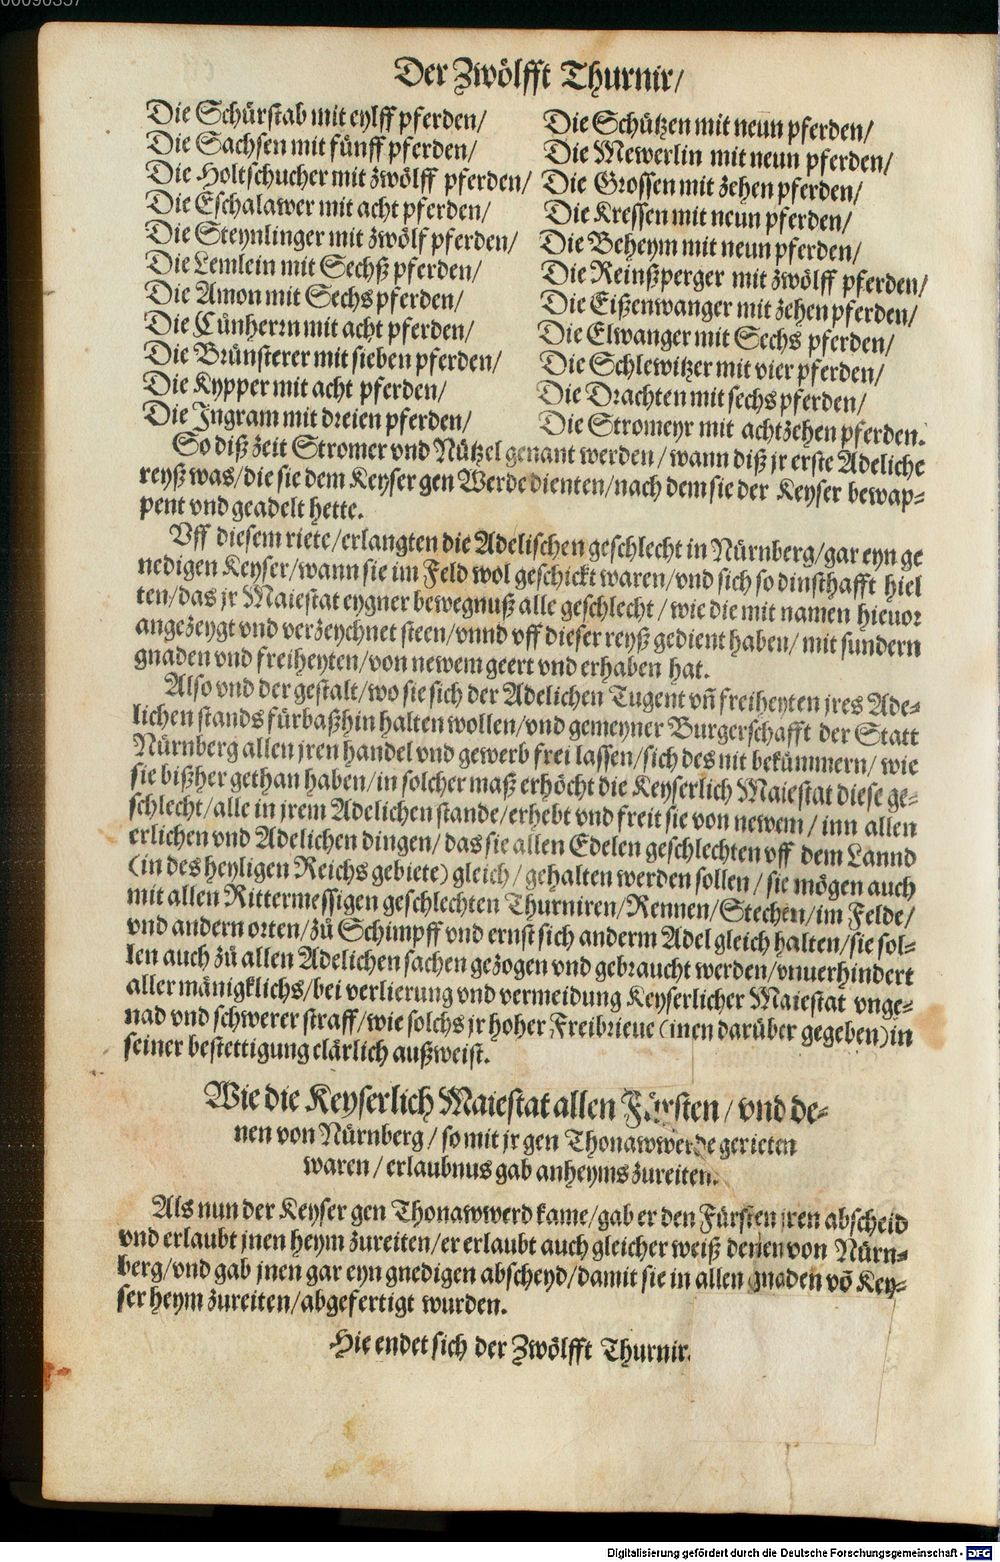 00090357
Der Zwölfft Thurnir/
Die Schürstab mit eylff pferden/
Die Sachsen mit fünff pferden/
Die Holtschucher mit zwölff pferden/
Die Eschalawer mit acht pferden/
Die Steynlinger mit zwölf pferden/
Die Lemlein mit Sechß pferden/
Die Amon mit Sechs pferden/
Die Cünherrn mit acht pferden/
Die Brünsterer mit sieben pferden/
Die Kypper mit acht pferden/
Die Ingram mit dreien pferden/
Die Schützen mit neun pferden/
Die Mewerlin mit neun pferden/
Die Grossen mit zehen pferden/
Die Kressen mit neun pferden/
Die Beheym mit neun pferden/
Die Reinßperger mit zwölff pferden/
Die Eißenwanger mit zehen pferden/
Die Elwanger mit Sechs pferden/
Die Schlewitzer mit vier pferden/
Die Drachten mit sechs pferden/
Die Stromeyr mit achtzehen pferden.
So diß zeit Stromer vnd Nützel genant werden/ wann diß jr erste Adeliche
reyß was/ die sie dem Keyser gen Werde dienten/ nach dem sie der Keyser bewap=
pent vnd geadelt hette.
Vff diesem riete/ erlangten die Adelischen geschlecht in Nürnberg/ gar eyn ge
nedigen Keyser/ wann sie im Feld wol geschickt waren/ vnd sich so dinsthafft hiel
ten/ das jr Maiestat eygner bewegnuß alle geschlecht/ wie die mit namen hieuor
angezeygt vnd verzeychnet steen/ vnnd vff dieser reyß gedient haben/ mit sundern
gnaden vnd freiheyten/ von newem geert vnd erhaben hat.
Also vnd der gestalt/ wo sie sich der Adelichen Tugent vñ freiheyten jres Ade=
lichen stands fürbaßhin halten wollen/ vnd gemeyner Burgerschafft der Statt
Nürnberg allen jren handel vnd gewerb frei lassen/ sich des nit bekümmern/ wie
sie bißher gethan haben/ in solcher maß erhöcht die Keyserlich Maiestat diese ge=
schlecht/ alle in jrem Adelichen stande/ erhebt vnd freit sie von newem/ inn allen
erlichen vnd Adelichen dingen/ das sie allen Edelen geschlechten vff dem Lannd
(in des heyligen Reichs gebiete) gleich/ gehalten werden sollen/ sie mögen auch
mit allen Rittermessigen geschlechten Thurniren/ Rennen/ Stechen/ im Felde/
vnd andern orten/ zů Schimpff vnd ernst sich anderm Adel gleich halten/ sie sol=
len auch zů allen Adelichen sachen gezogen vnd gebraucht werden/ vnuerhindert
aller mänigklichs/ bei verlierung vnd vermeidung Keyserlicher Maiestat vnge=
nad vnd schwerer straff/ wie solchs jr hoher Freibrieue (inen darüber gegeben) in
seiner bestettigung clärlich außweist.
Wie die Keyserlich Maiestat allen Fürsten/ vnd de=
nen von Nürnberg/ so mit jr gen Thonawwerde gerieten
waren/ erlaubnus gab anheyms zureiten.
Als nun der Keyser gen Thonawwerd kame/ gab er den Fürsten jren abscheid
vnd erlaubt jnen heym zureiten/ er erlaubt auch gleicher weiß denen von Nürn=
berg/ vnd gab jnen gar eyn gnedigen abscheyd/ damit sie in allen gnaden võ Key=
ser heym zureiten/ abgefertigt wurden.
Hie endet sich der Zwölfft Thurnir.
Digitalisierung gefördert durch die Deutsche Forschungsgemeinschaft - DFG